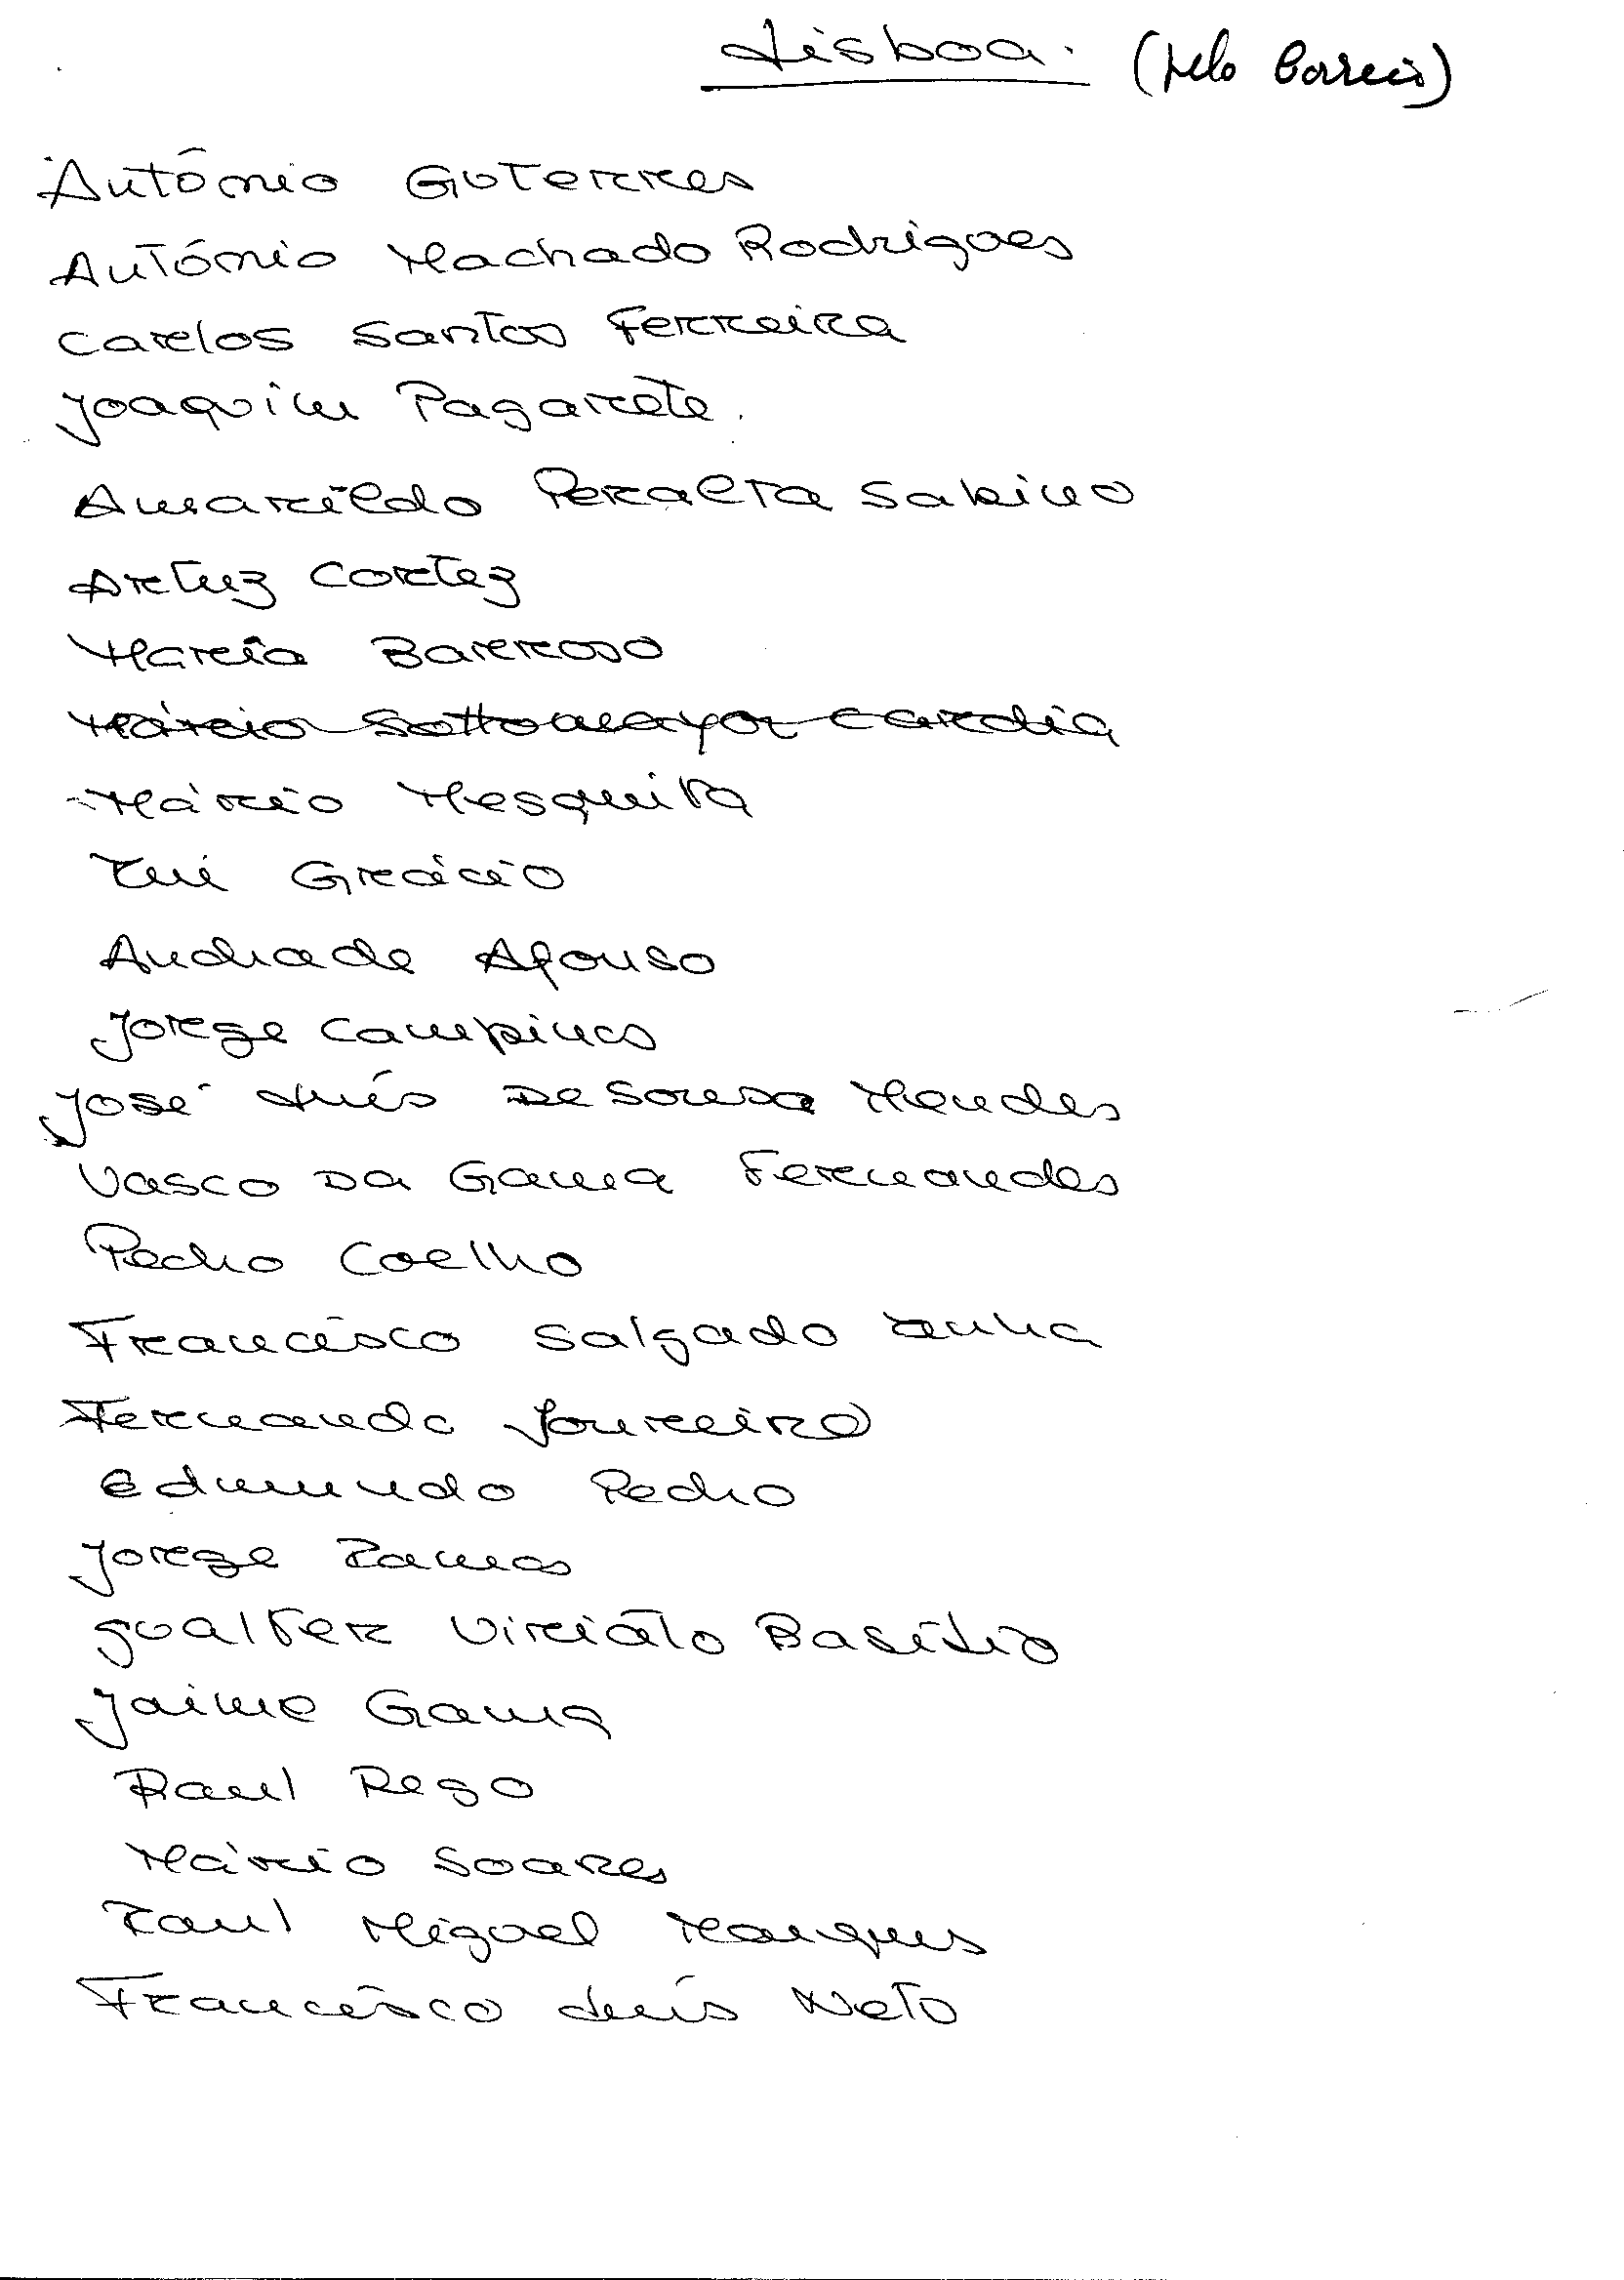 Lisboa. (pelo Correio)
António Guterres
António Machado Rodrigues
Carlos Santos Ferreira
Joaquim Pagarete.
Amarildo Peralta Sabino
Artur Cortez
Maria Barroso
Mário Sottomayor Cardia
Mário Mesquita
Rui Grácio
Andrade Afonso
Jorge Campinos
José Luís De Sousa Mendes
Vasco Da Gama Fernandes
Pedro Coelho
Francisco Salgado Zenha
Fernando Loureiro
Edmundo Pedro
Jorge Ramos
Gualter Viriato Basílio
Jaime Gama
Raul Rego
Mário Soares
Raul Miguel Marques
Francisco Luís Neto